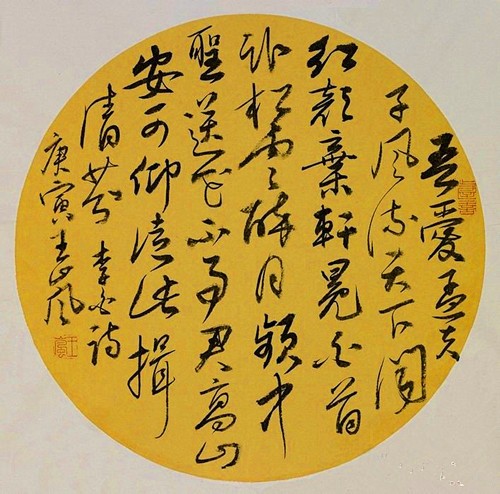 吾愛孟夫
子風流天下聞
紅顔棄軒冕白首
卧松雲醉月頻中
聖迷花不事君高山
安可仰徒此揖
清芬 李白詩
庚寅王